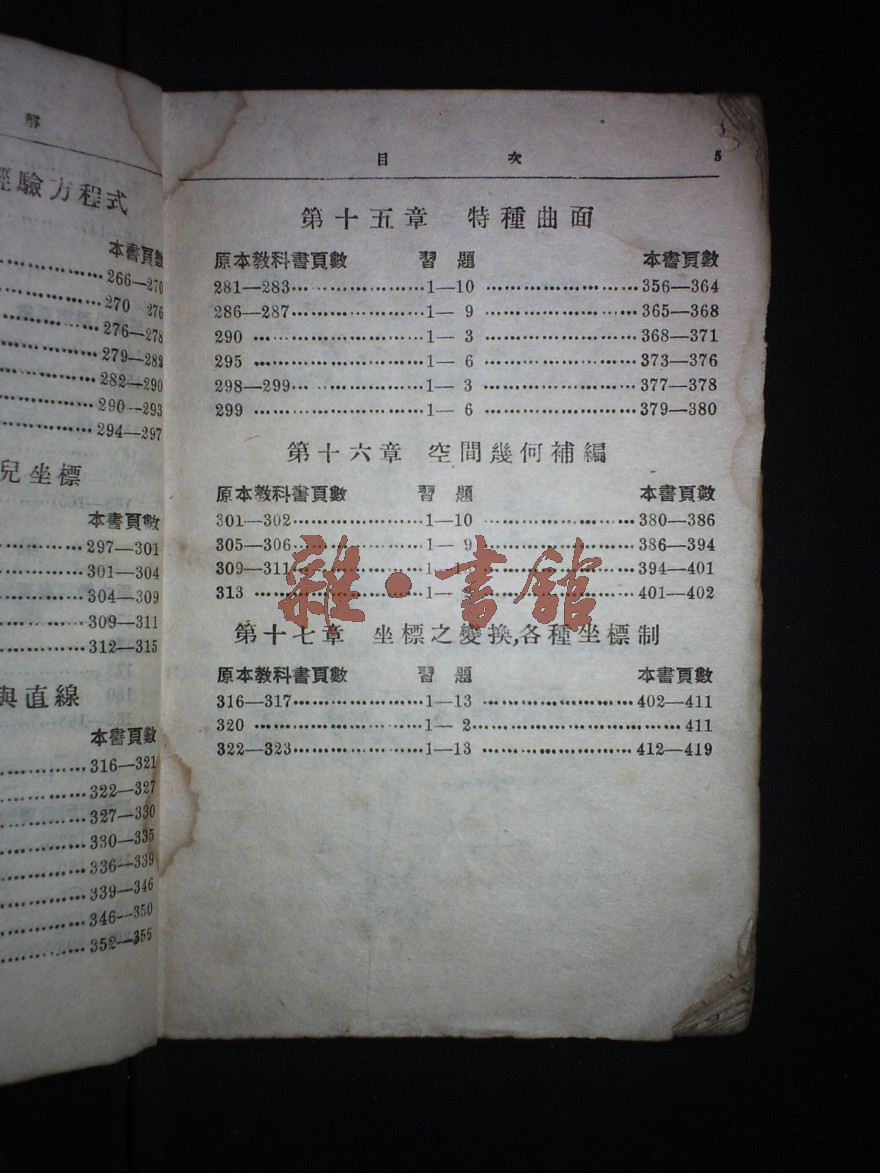 解
經驗方程式
本書頁數
266—270
270 276
276—278
279—282
282—290
290—293
294—297
兒坐標
本書頁數
297—301
301—304
304—309
309—311
312—315
與直線
本書頁數
316—321
322—327
327—330
330—335
336—339
339—346
346—350
352—356
目 次 5
第十五章 特種曲面
原本教科書頁數 習題 本書頁數
281—283 1—10 356—364
286—287 1—9 365—368
290 1—3 368—371
295 1—6 373—376
298—299 1—3 377—378
299 1—6 379—380
第十六章 空間幾何補編
原本教科書頁數 習題 本書頁數
301—302 1—10 380—386
305—306 1—9 386—394
309—311 394—401
313 401—402
雜·書館
第十七章 坐標之變換,各種坐標制
原本教科書頁數 習題 本書頁數
316—317 1—13 402—411
320 1—2 411
322—323 1—13 412—419